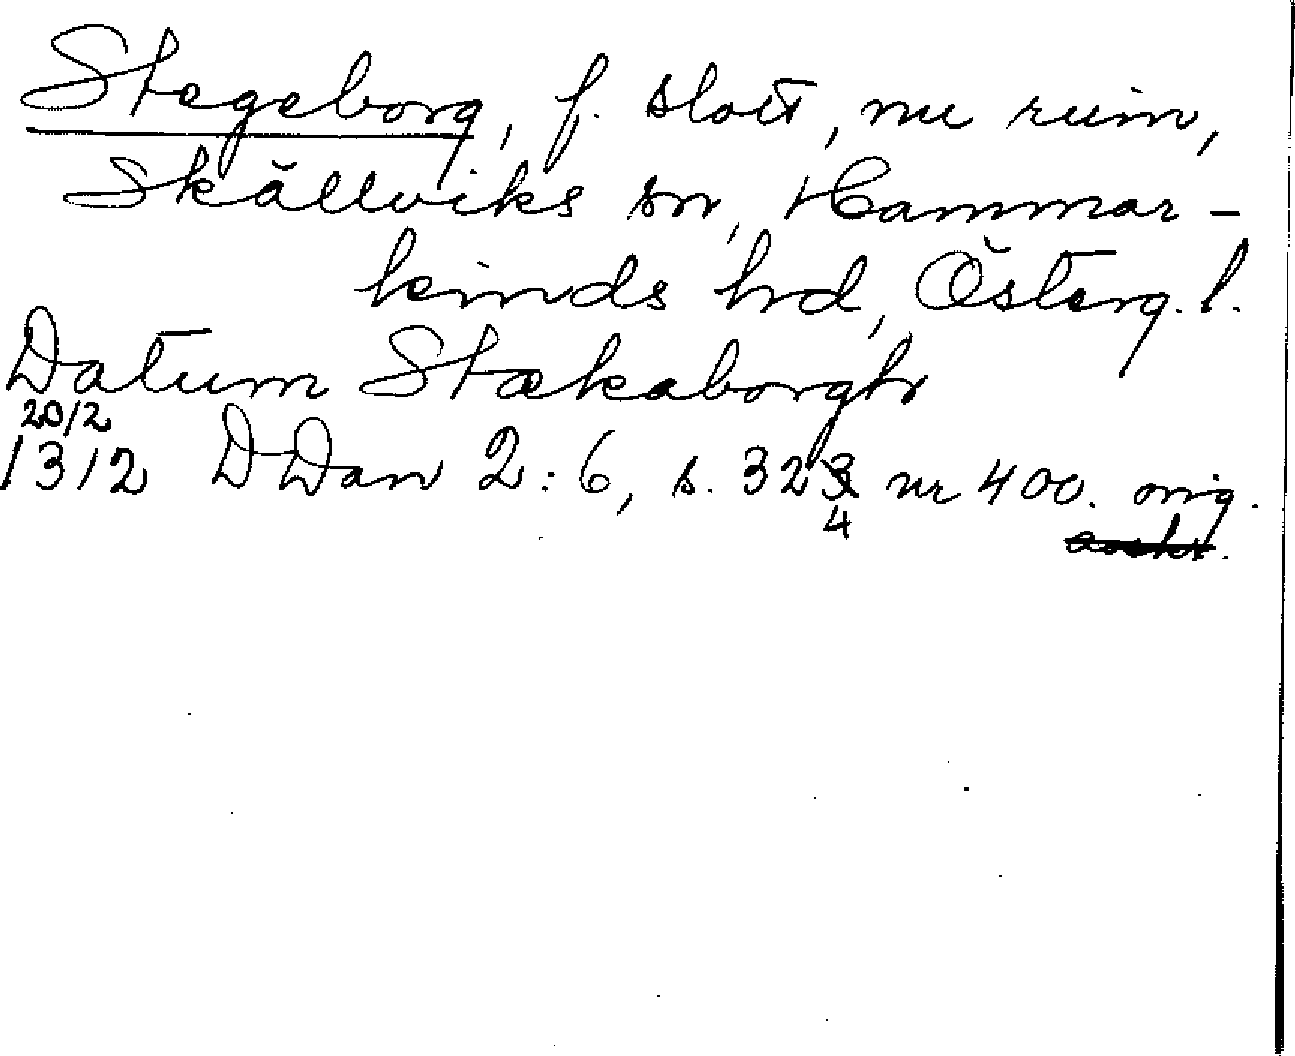 Stegeborg, f. slott, nu ruin,
Skällviks sn, Hammar-
kinds hrd, Österg. l.
Datum Stækaborgh
20/2
1312 DDan 2:6, s. 323 nr 400. orig.
4
avskr.